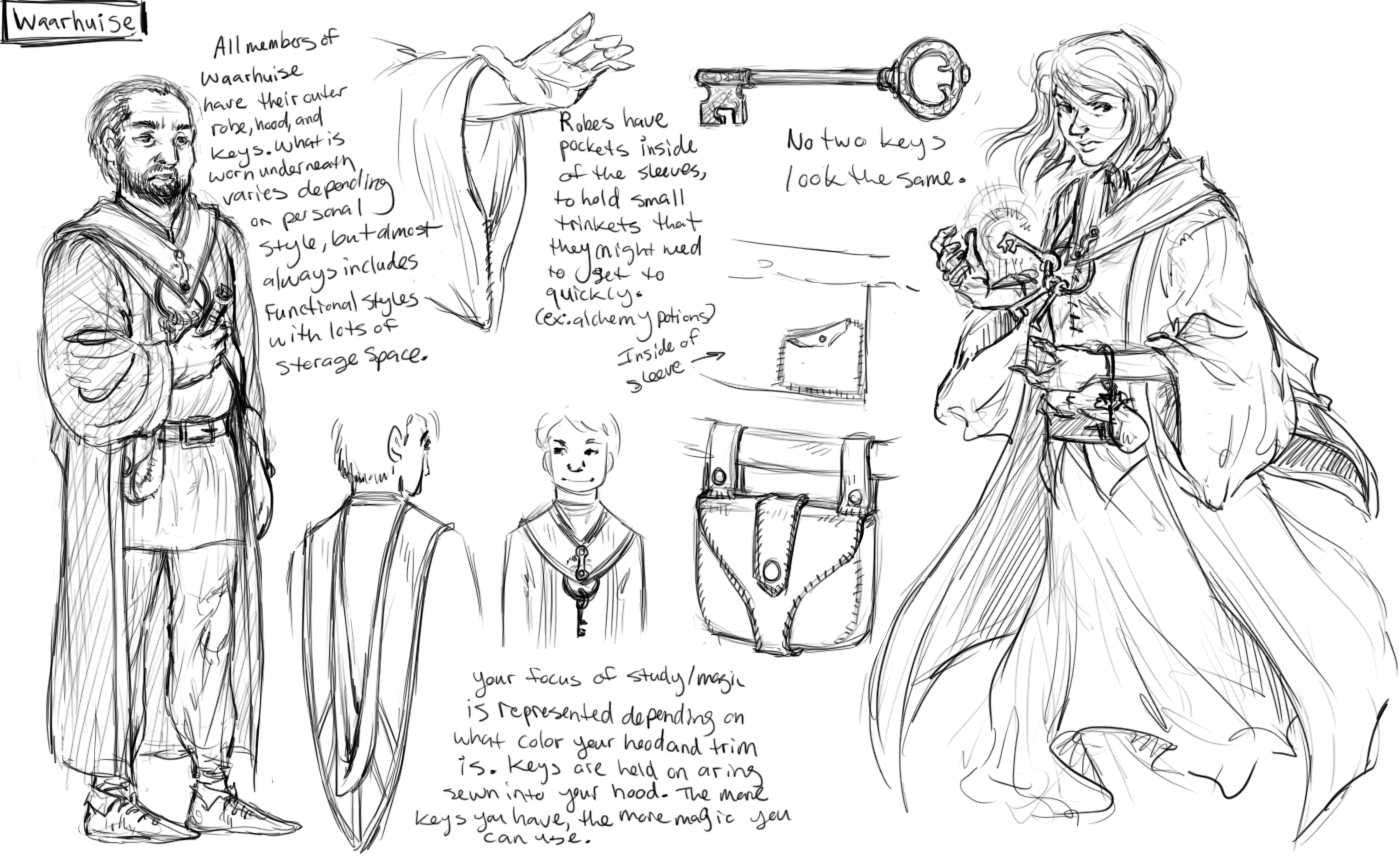 Waarhuise
All members of
Waarhuise
have their outer
robe, hood, and
keys. What is
worn underneath
varies depending
on personal
style, but almost
always includes
Functional styles
with lots of
storage space.
Robes have
pockets inside
of the sleeves,
to hold small
trinkets that
they might need
to get to
quickly.
(ex: alchemy potions)
Inside of
sleeve
No two keys
look the same.
your focus of study/magic
is represented depending on
what color your hood and trim
is. Keys are held on a ring
sewn into your hood. The more
keys you have, the more magic you
can use.